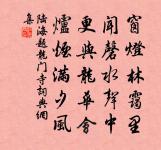 窗燈林靄里
聞磬水聲中
更與龍華會
爐煙滿夕風
陸海題龍門寺詞典網
集